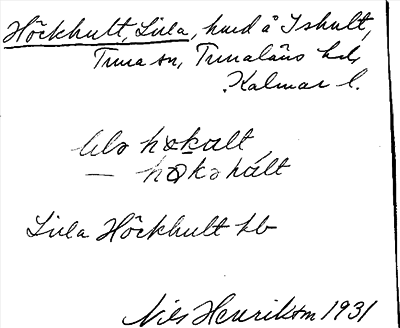 Höckhult, Lilla, hmd å Ishult,
Tuna sn, Tunaläns hd,
Kalmar l.
lilə hɵkəlt
— hɵkəhúlt
Lilla Höckhult hb
Nils Henrikson 1931